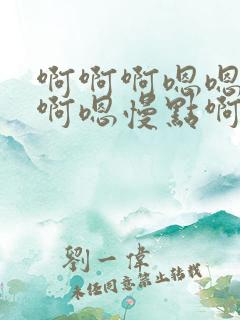 啊啊啊嗯嗯
啊嗯慢點啊
劉一偉
未经同意禁止转载